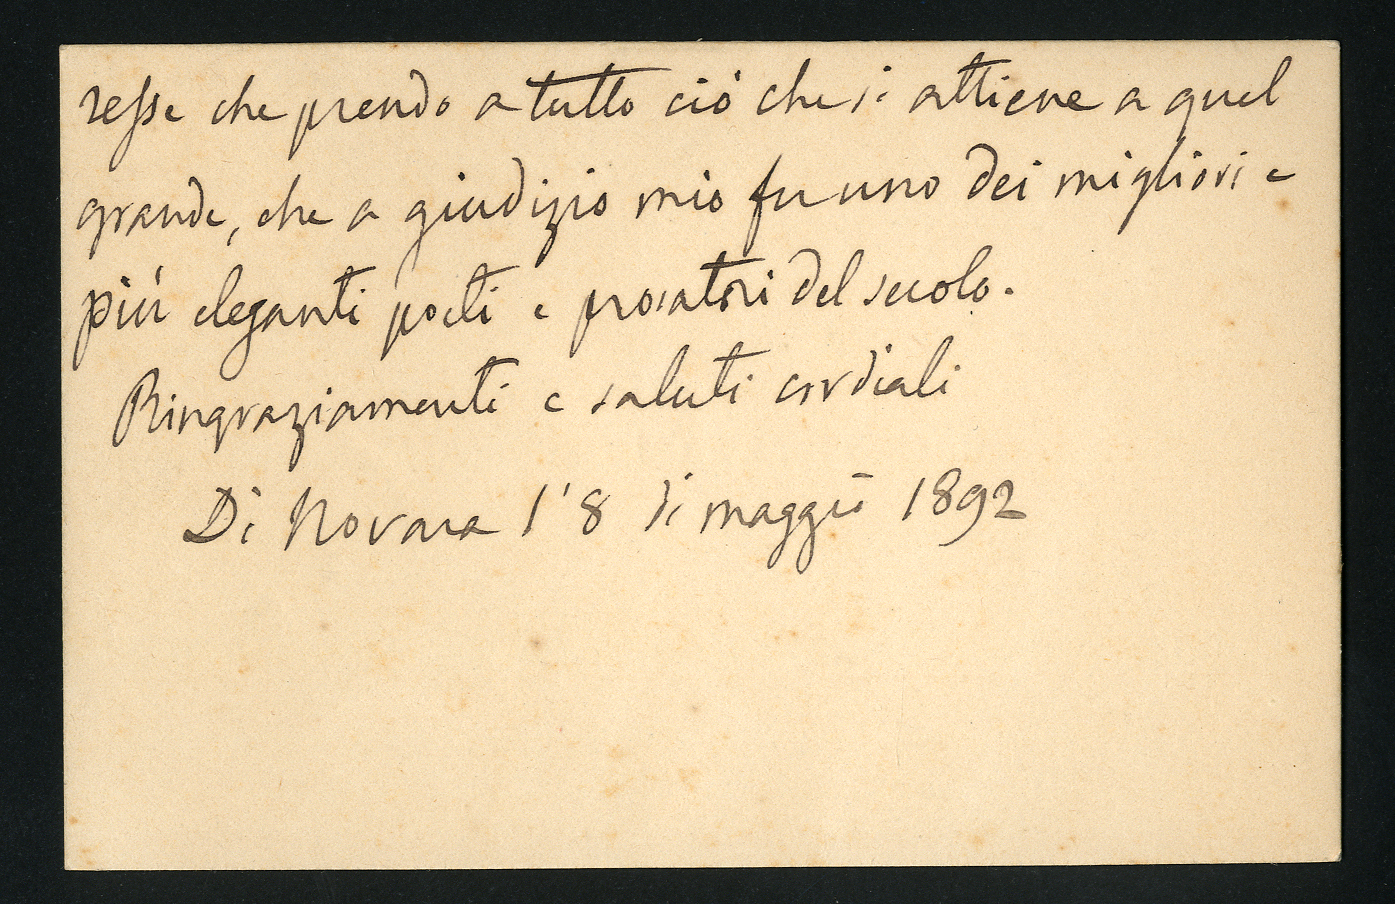 resse che prendo a tutto ciò che si attiene a quel
grande, che a giudizio mio fu uno dei migliori e
più eleganti poeti e prosatori del secolo.
Ringraziamenti e saluti cordiali
Di Novara l'8 di maggio 1892